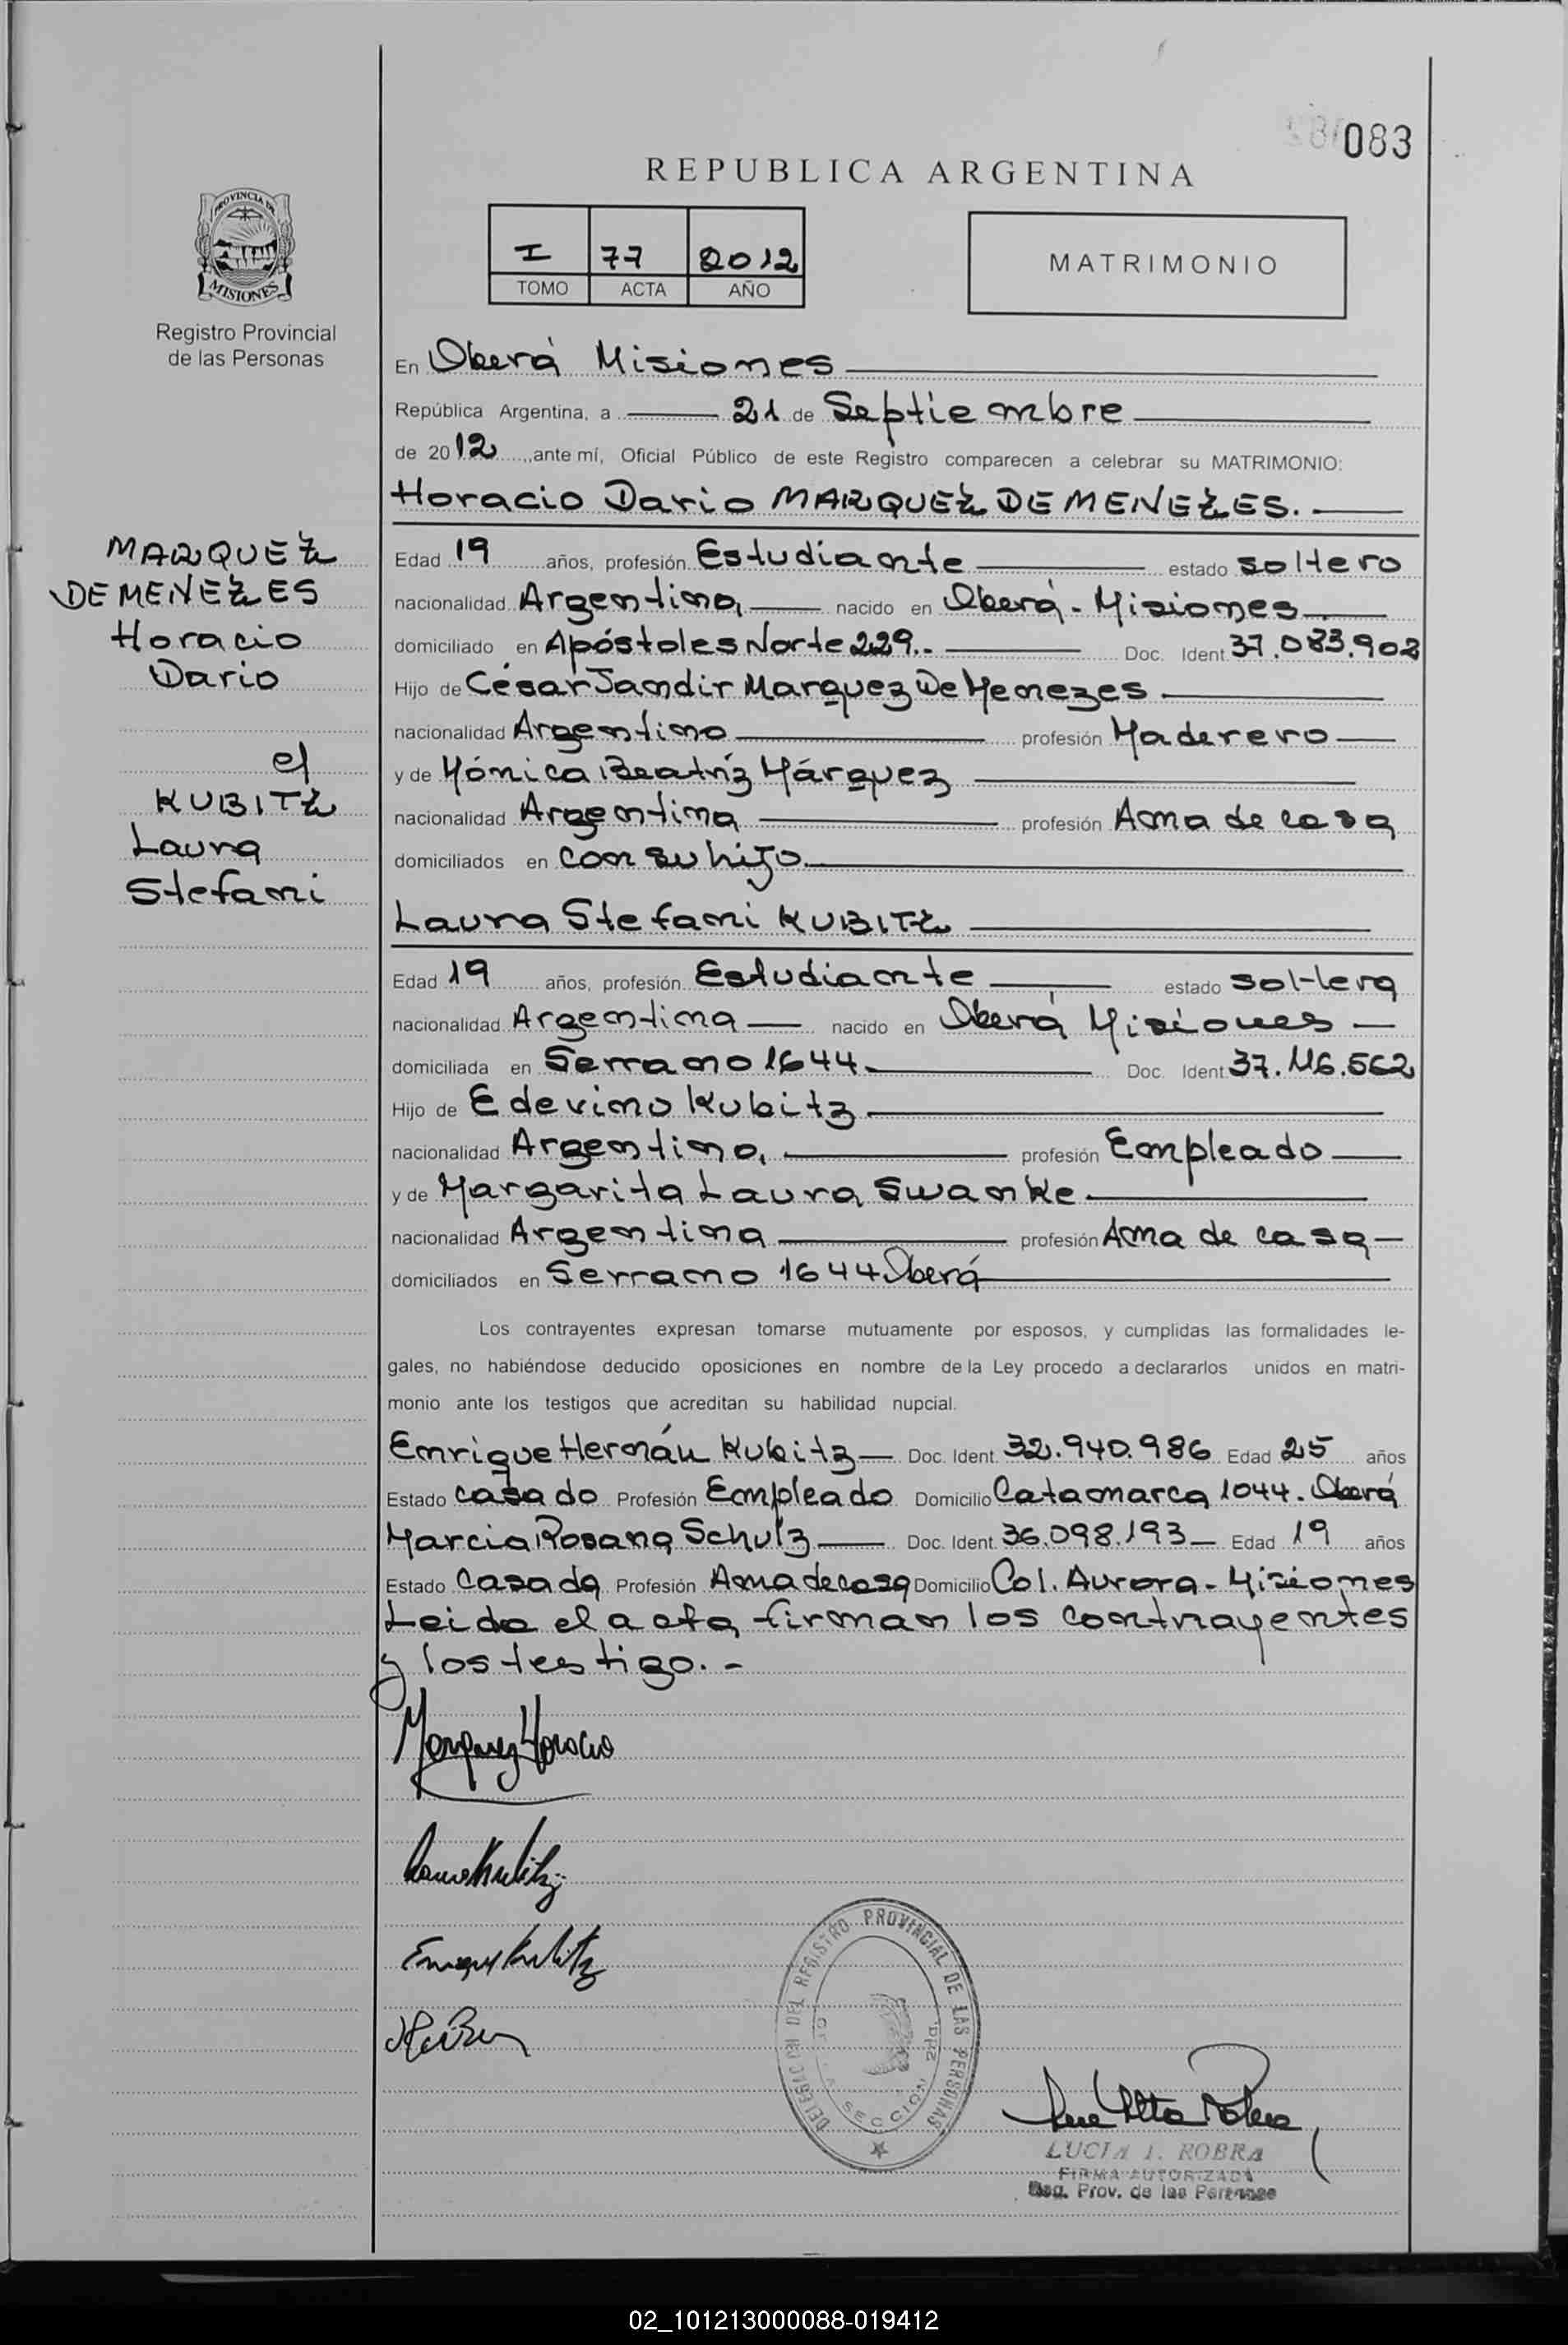 083
REPUBLICA ARGENTINA
PROVINCIA DE
MISIONES
Registro Provincial
de las Personas
I 77 2012
TOMO ACTA AÑO
MATRIMONIO
En Oberá Misiones
República Argentina, a 21 de Septiembre
de 2012, ante mí, Oficial Público de este Registro comparecen a celebrar su MATRIMONIO:
Horacio Dario MARQUEZ DE MENEZES.
MARQUEZ
DE MENEZES
Horacio
Dario
Edad 19 años, profesión Estudiante estado soltero
nacionalidad Argentina nacido en Oberá - Misiones
domiciliado en Apóstoles Norte 229.- Doc. Ident. 37.083.902
Hijo de César Jandir Marquez De Menezes
nacionalidad Argentino profesión Maderero
y de Mónica Beatríz Márquez
nacionalidad Argentina profesión Ama de casa
domiciliados en con su hijo
el
KUBITZ
Laura
Stefani
Laura Stefani KUBITZ
Edad 19 años, profesión Estudiante estado soltera
nacionalidad Argentina nacido en Oberá Misiones
domiciliada en Serrano 1644 Doc. Ident. 37.116.562
Hijo de Edevino Kubitz
nacionalidad Argentino, profesión Empleado
y de Margarita Laura Swanke
nacionalidad Argentina profesión Ama de casa
domiciliados en Serrano 1644 Oberá
Los contrayentes expresan tomarse mutuamente por esposos, y cumplidas las formalidades le-
gales, no habiéndose deducido oposiciones en nombre de la Ley procedo a declararlos unidos en matri-
monio ante los testigos que acreditan su habilidad nupcial.
Enrique Hernán Kubitz Doc. Ident. 32.940.986 Edad 25 años
Estado casado Profesión Empleado Domicilio Catamarca 1044. Oberá
Marcia Rosana Schulz Doc. Ident. 36.098.193 Edad 19 años
Estado Casada Profesión Ama de casa Domicilio Col. Aurora - Misiones
Leida el acta firman los contrayentes
y los testigo.-
Marquez Horacio
Kubitz
Kubitz
DELEGACION DEL REGISTRO PROVINCIAL DE LAS PERSONAS
SECCION 2da.
LUCIA I. ROBRA
FIRMA AUTORIZADA
Reg. Prov. de las Personas
02_101213000088-019412